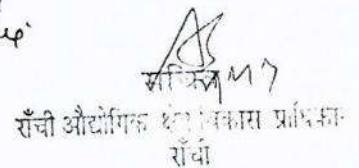 सचिव
राँची औद्योगिक क्षेत्र विकास प्राधिकार
राँची